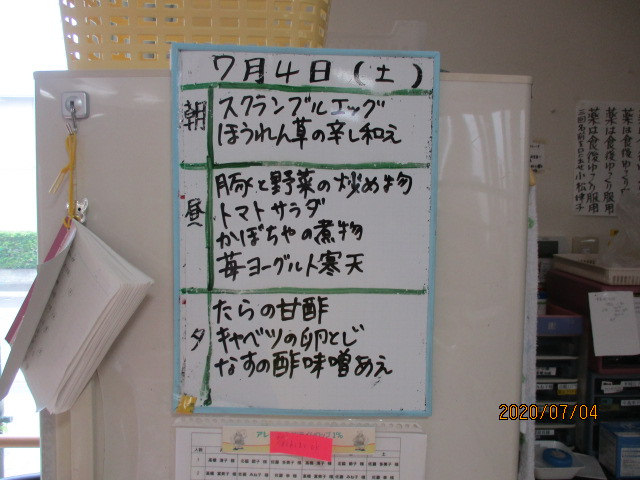 7月4日(土)
朝
スクランブルエッグ
ほうれん草の辛し和え
昼
豚と野菜の炒め物
トマトサラダ
かぼちゃの煮物
苺ヨーグルト寒天
夕
たらの甘酢
キャベツの卵とじ
なすの酢味噌あえ
薬は食後ゆっくり服用
薬は食後ゆっくり服用
2020/07/04